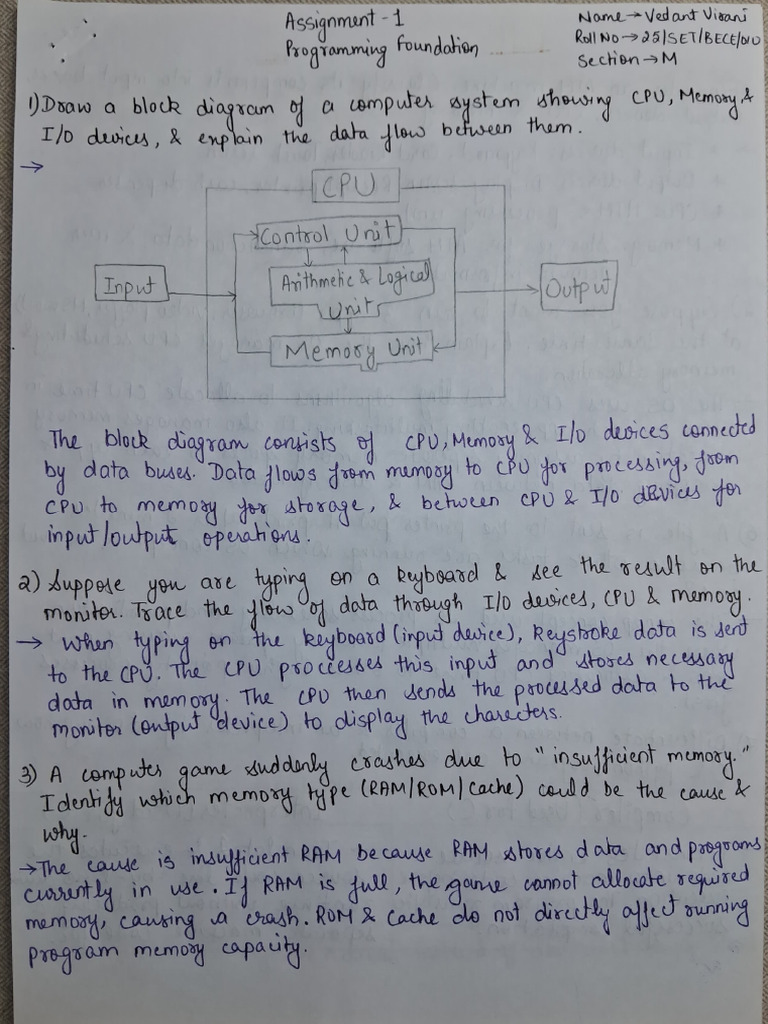 Assignment - 1
Programming Foundation
Name → Vedant Virani
Roll No → 25/SET/BECE/010
Section → M
1) Draw a block diagram of a computer system showing CPU, Memory, &
I/O devices, & explain the data flow between them.
→
CPU
Control Unit
Input
Arithmetic & Logical
Units
Output
Memory Unit
The block diagram consists of CPU, Memory & I/O devices connected
by data buses. Data flows from memory to CPU for processing, from
CPU to memory for storage, & between CPU & I/O devices for
input/output operations.
2) Suppose you are typing on a keyboard & see the result on the
monitor. Trace the flow of data through I/O devices, CPU & memory.
→ When typing on the keyboard (input device), keystroke data is sent
to the CPU. The CPU proccesses this input and stores necessary
data in memory. The CPU then sends the processed data to the
monitor (output device) to display the charecters.
3) A computer game suddenly crashes due to "insufficient memory."
Identify which memory type (RAM/ROM/cache) could be the cause &
why.
→ The cause is insufficient RAM because RAM stores data and programs
currently in use. If RAM is full, the game cannot allocate required
memory, causing a crash. ROM & Cache do not directly affect running
program memory capacity.